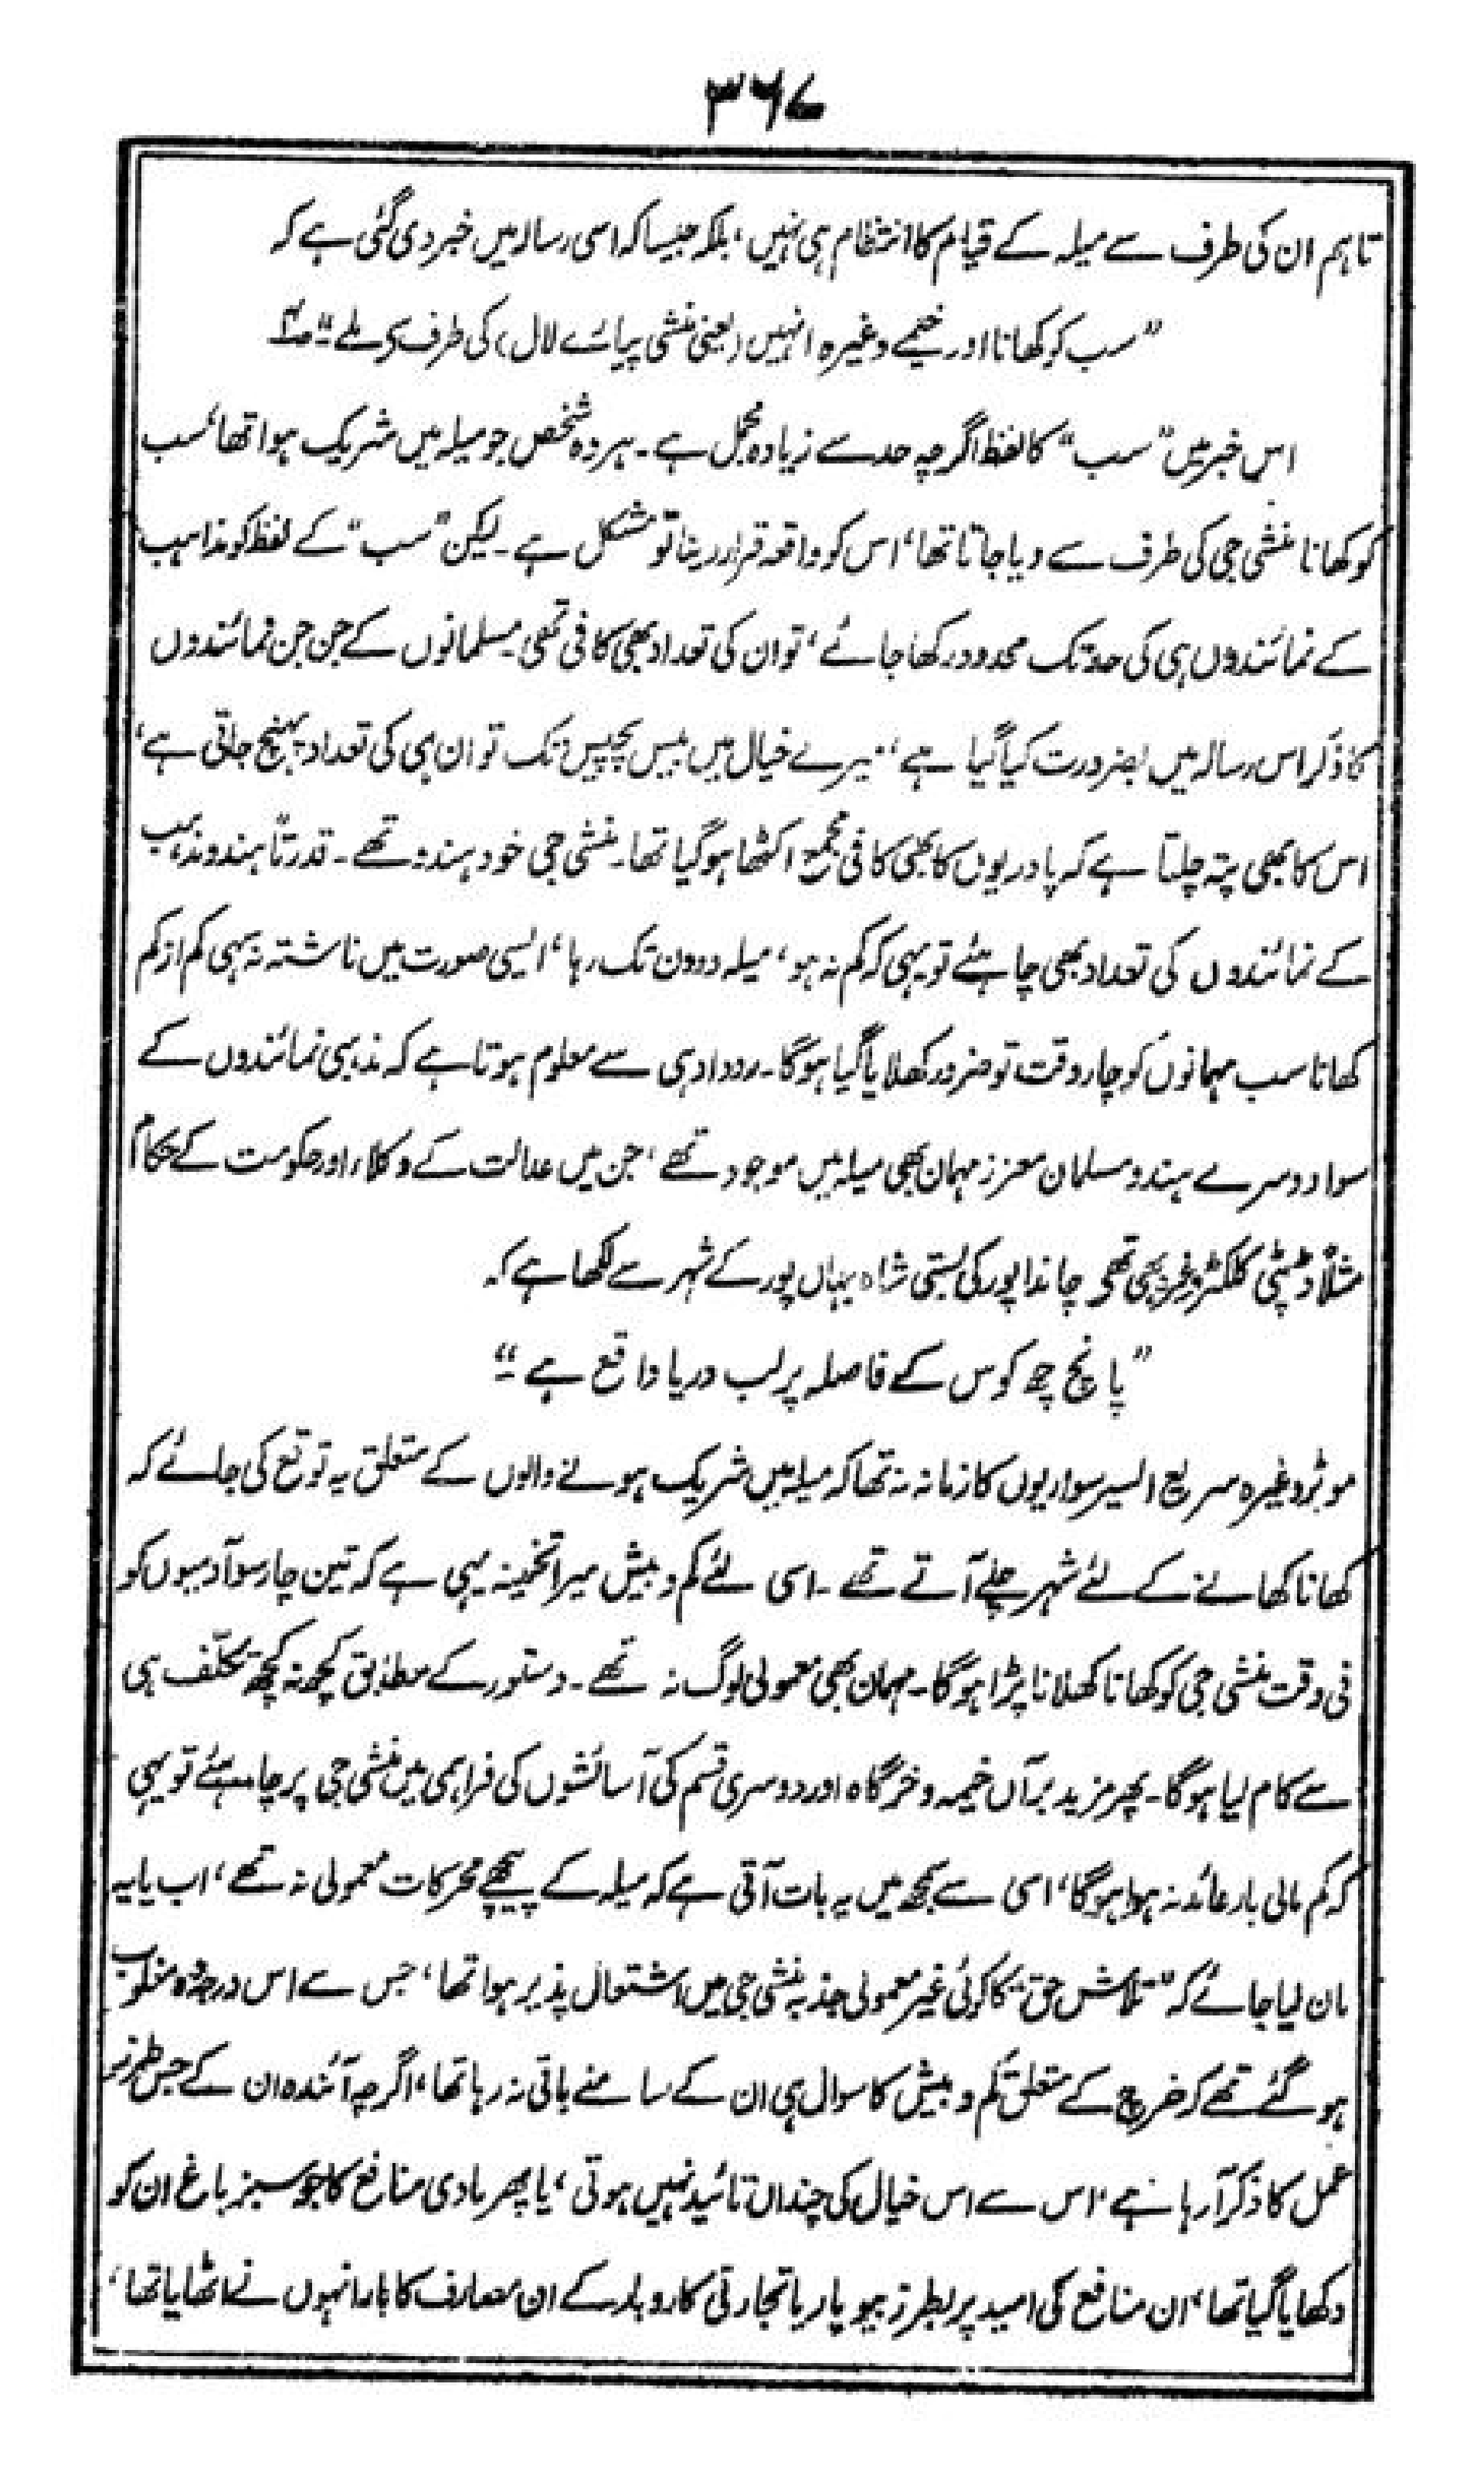 ۳۶۷
تاہم ان کی طرف سے میلہ کے قیام کا انتظام ہی نہیں، بلکہ جیسا کہ اسی رسالہ میں خبر دی گئی ہے کہ
"سب کو کھانا اور خیمے وغیرہ انہیں (یعنی منشی پیارے لال) کی طرف سے ملے"
اس خبر میں "سب" کا لفظ اگرچہ حد سے زیادہ مجمل ہے۔ ہر وہ شخص جو میلہ میں شریک ہوا تھا، سب
کو کھانا منشی جی کی طرف سے دیا جاتا تھا، اس کو واقعہ قرار دینا تو مشکل ہے۔ لیکن "سب" کے لفظ کو مذاہب
کے نمائندوں ہی کی حد تک محدود رکھا جائے، تو ان کی تعداد بھی کافی تھی۔ مسلمانوں کے جن جن نمائندوں
کا ذکر اس رسالہ میں بضرورت کیا گیا ہے، میرے خیال میں بیس پچیس تک تو ان ہی کی تعداد پہنچ جاتی ہے،
اس کا بھی پتہ چلتا ہے کہ پادریوں کا بھی کافی مجمع اکٹھا ہو گیا تھا۔ منشی جی خود ہندو تھے۔ قدرتاً ہندو مذہب
کے نمائندوں کی تعداد بھی چاہئے تو یہی کہ کم نہ ہو، میلہ دو دن تک رہا، ایسی صورت میں ناشتہ نہ سہی کم از کم
کھانا سب مہمانوں کو چار وقت تو ضرور کھلایا گیا ہوگا۔ روداد ہی سے معلوم ہوتا ہے کہ مذہبی نمائندوں کے
سوا دوسرے ہندو مسلمان معزز مہمان بھی میلہ میں موجود تھے، جن میں عدالت کے وکلاء اور حکومت کے حکام
مثلاً ڈپٹی کلکٹر وغیرہ بھی تھے چاندا پور کی بستی شاہ جہاں پور کے شہر سے لکھا ہے کہ
"پانچ چھ کوس کے فاصلہ پر لب دریا واقع ہے"
موٹر وغیرہ سریع السیر سواریوں کا زمانہ نہ تھا کہ میلہ میں شریک ہونے والوں کے متعلق یہ توقع کی جائے کہ
کھانا کھانے کے لئے شہر چلے آتے تھے۔ اسی لئے کم و بیش میرا تخمینہ یہی ہے کہ تین چار سو آدمیوں کو
فی وقت منشی جی کو کھانا کھلانا پڑا ہوگا۔ مہمان بھی معمولی لوگ نہ تھے۔ دستور کے مطابق کچھ نہ کچھ تکلّف ہی
سے کام لیا ہوگا۔ پھر مزید برآں خیمہ و خرگاہ اور دوسری قسم کی آسائشوں کی فراہمی میں منشی جی پر چاہئے تو یہی
کہ کم مالی بار عائد نہ ہوا ہوگا، اسی سے سمجھ میں یہ بات آتی ہے کہ میلہ کے پیچھے محرکات معمولی نہ تھے، اب یا یہ
مان لیا جائے کہ "تلاش حق" کا کوئی غیر معمولی جذبہ منشی جی میں اشتعال پذیر ہوا تھا، جس سے اس درجہ وہ مغلوب
ہو گئے تھے کہ خرچ کے متعلق کم و بیش کا سوال ہی ان کے سامنے باقی نہ رہا تھا، اگرچہ آئندہ ان کے جس طرز
عمل کا ذکر آ رہا ہے، اس سے اس خیال کی چنداں تائید نہیں ہوتی، یا پھر مادی منافع کا جو سبز باغ ان کو
دکھایا گیا تھا، ان منافع کی امید پر بطرز بیوپار یا تجارتی کاروبار کے ان مصارف کا بار انہوں نے اٹھایا تھا،